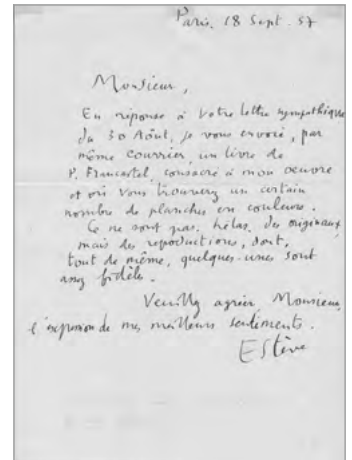 Paris, 18 Sept. 57
Monsieur,
En réponse à votre lettre sympathique
du 30 Août, je vous envoie, par
même courrier, un livre de
P. Francastel, consacré à mon oeuvre
et où vous trouverez un certain
nombre de planches en couleurs.
Ce ne sont pas, hélas, des originaux
mais des reproductions, dont,
tout de même, quelques-unes sont
assez fidèles.
Veuillez agréer Monsieur,
l'expression de mes meilleurs sentiments.
Estève